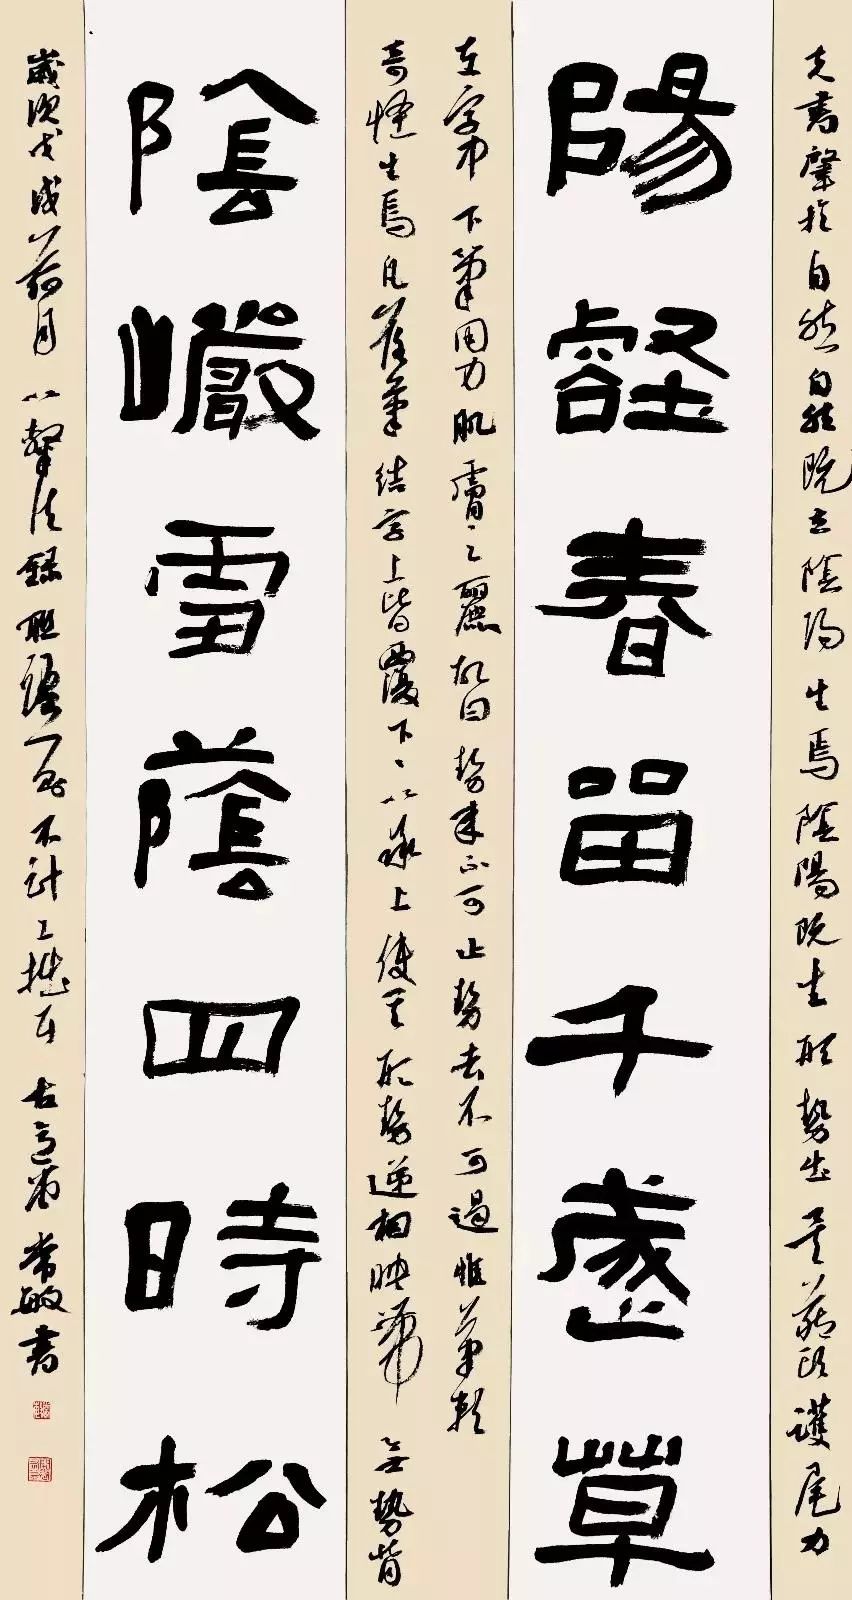 夫書肇於自然自然既立陰陽生焉陰陽既生形勢出矣藏頭護尾力
陽壑春留千歲草
在字中下筆用力肌膚之麗故曰勢來不可止勢去不可遏惟筆軟
奇怪生焉凡落筆結字上皆覆下下以承上使其形勢遞相映帶無勢背
陰巖雪蔭四時松
歲次戊戌荷月以法錄聯語一不計工拙耳古常敏書